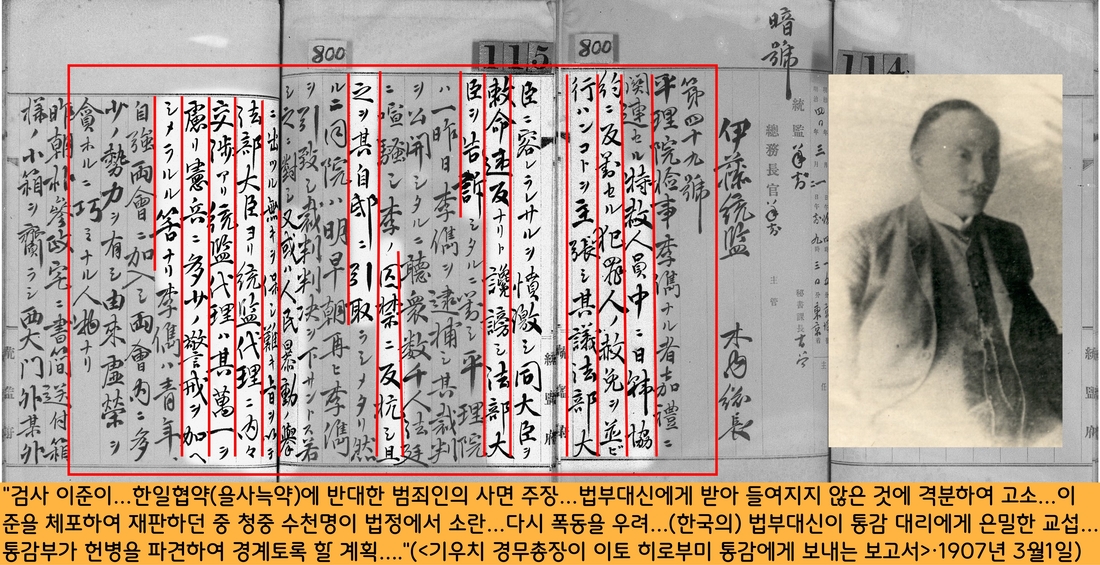 暗號
800
115
800
114
統監
總務長官
主管
秘書課長
伊藤統監 木內總長
第四十九號
平理院檢事李儁ナル者嘉禮ニ
関連セル特赦人員中ニ日韓協
約ニ反對セル犯罪人ノ赦免ヲ並ビ
行ハンコトヲ主張シ其議法部大
臣ニ容レラレサルヲ憤激シ同大臣ヲ
敕命違反ナリト讒謗シ法部大
臣ヲ告訴シタルニ對シ平理院
ハ一昨日李儁ヲ逮捕シ其裁判
ヲ公開シタルニ聽衆数千人法廷
ニ喧騒シ李ノ囚禁ニ反抗シ且
之ヲ其自邸ニ引取ラシメタリ然
ルニ同院ハ明早朝再ヒ李儁
ヲ引致シ裁判判決ヲ下サントス若
シ之ニ對シ又或ハ人民暴動ノ擧
ニ出ツル無キヲ保シ難キ旨ヲ以テ
法部大臣ヨリ統監代理ニ內々
交渉アリ統監代理ハ其萬一ヲ
慮リ憲兵ニ多少ノ警戒ヲ加ヘ
シメラルル筈ナリ李儁ハ青年、
自強両會ニ加入シ両會內ニ多
少ノ勢力ヲ有シ由來虛榮ヲ
貪ホルニ巧ミナル人物ナリ
昨朝朴參政宅ニ書簡送付箱
様ノ小箱ヲ齎ラシ西大門外某外
統監府
"검사 이준이...한일협약(을사늑약)에 반대한 범죄인의 사면 주장...법부대신에게 받아 들여지지 않은 것에 격분하여 고소...이
준을 체포하여 재판하던 중 청중 수천명이 법정에서 소란...다시 폭동을 우려...(한국의) 법부대신이 통감 대리에게 은밀한 교섭...
통감부가 헌병을 파견하여 경계토록 할 계획...."(<기우치 경무총장이 이토 히로부미 통감에게 보내는 보고서>·1907년 3월1일)